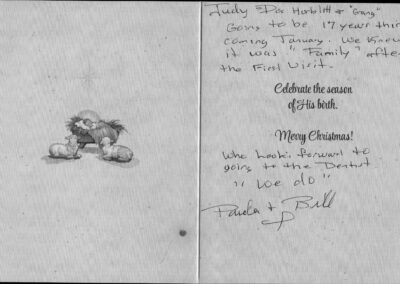 Judy Doc Horblitt + "Gang"
Going to be 17 years this
coming January. We knew
it was "Family" after
the First Visit.
Celebrate the season
of His birth.
Merry Christmas!
Who look's forward to
going to the Dentist
"We do"
& Bill